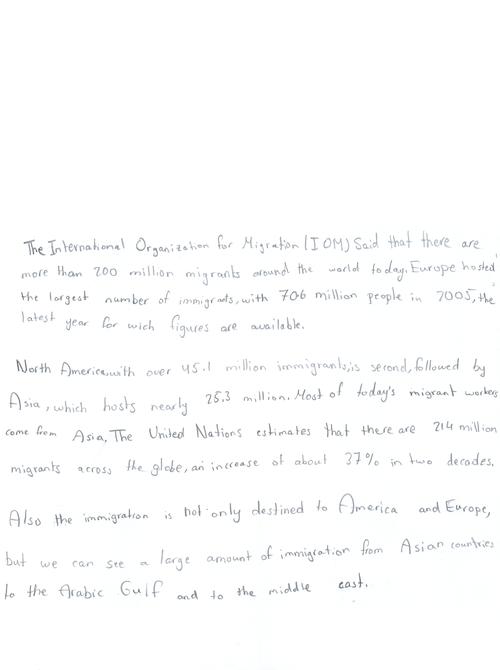 The International Organization for Migration (IOM) Said that there are
more than 200 million migrants around the world today. Europe hosted
the largest number of immigrants, with 70.6 million people in 2005, the
latest year for wich figures are available.
North America, with over 45.1 million immigrants, is second, followed by
Asia, which hosts nearly 25.3 million. Most of today's migrant workers
come from Asia. The United Nations estimates that there are 214 million
migrants across the globe, an increase of about 37% in two decades.
Also the immigration is not only destined to America and Europe,
but we can see a large amount of immigration from Asian countries
to the Arabic Gulf and to the middle east.